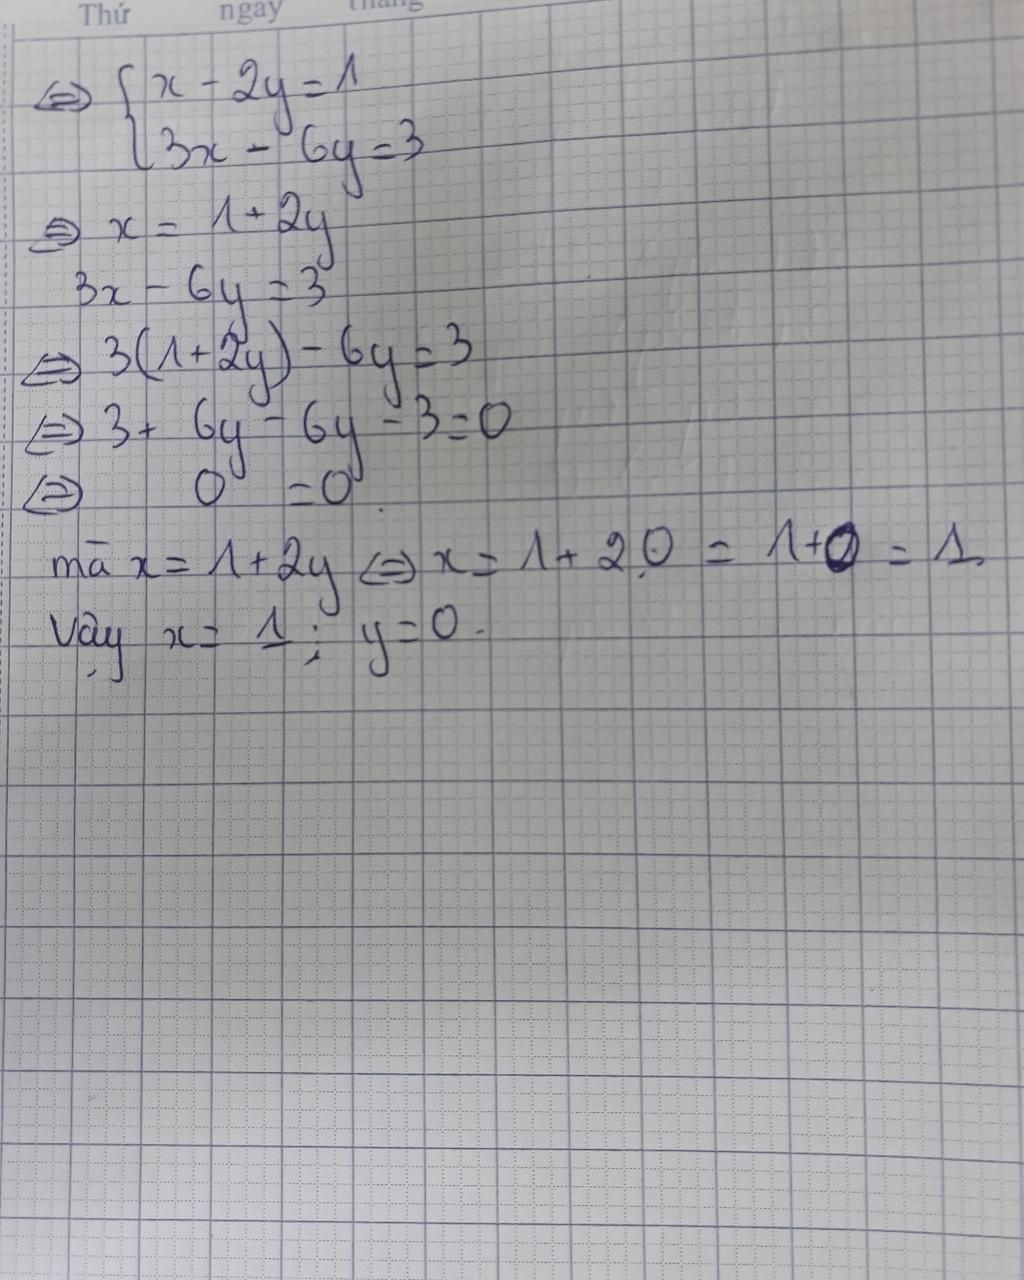 Thứ ngày tháng
⇔ { x - 2y = 1
3x - 6y = 3
⇔ x = 1 + 2y
3x - 6y = 3
⇔ 3(1+2y) - 6y = 3
⇔ 3 + 6y - 6y - 3 = 0
⇔ 0 = 0.
mà x = 1 + 2y ⇔ x = 1 + 2.0 = 1+0 = 1.
Vậy x = 1; y = 0.